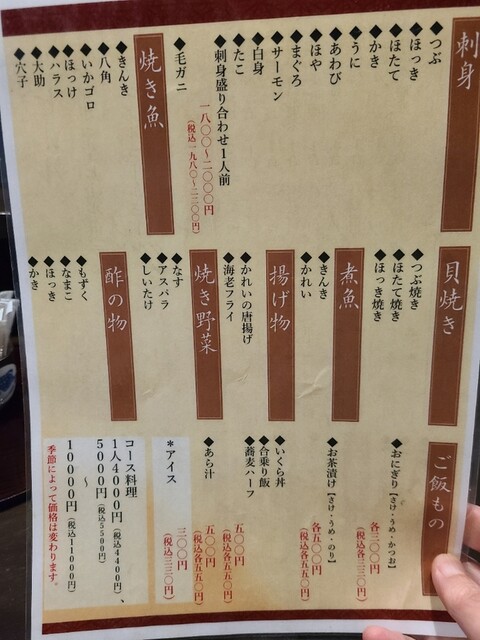 刺身
◆つぶ
◆ほっき
◆ほたて
◆かき
◆うに
◆あわび
◆ほや
◆まぐろ
◆サーモン
◆白身
◆たこ
◆刺身盛り合わせ1人前
一八〇〇〜二〇〇〇円
(税込一九八〇〜二二〇〇円)
◆毛ガニ
焼き魚
◆きんき
◆八角
◆いかゴロ
◆ほっけ
◆ハラス
◆大助
◆穴子
貝焼き
◆つぶ焼き
◆ほたて焼き
◆ほっき焼き
煮魚
◆きんき
◆かれい
揚げ物
◆かれいの唐揚げ
◆海老フライ
焼き野菜
◆なす
◆アスパラ
◆しいたけ
酢の物
◆もずく
◆なまこ
◆ほっき
◆かき
ご飯もの
◆おにぎり【さけ・うめ・かつお】
各三〇〇円
(税込三三〇円)
◆お茶漬け【さけ・うめ・のり】
各五〇〇円
(税込各五五〇円)
◆いくら丼
◆合乗り飯
◆蕎麦ハーフ
五〇〇円
(税込各五五〇円)
◆あら汁
五〇〇円
(税込各五五〇円)
*アイス
三〇〇円
(税込三三〇円)
コース料理
1人4000円(税込4400円)、
5000円(税込5500円)
〜
10000円(税込11000円)
季節によって価格は変わります。